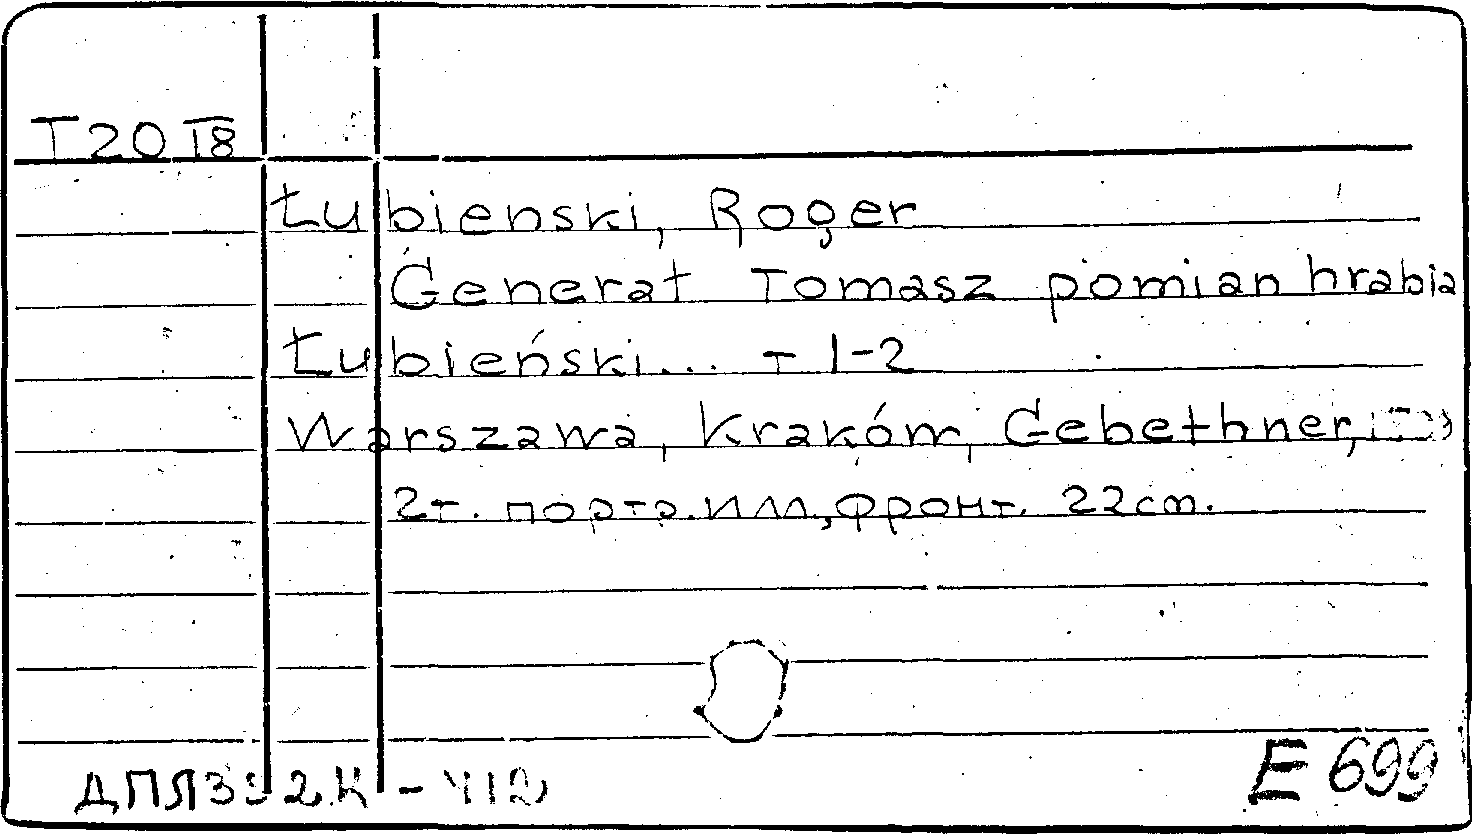 T20 I8
Łubienski, Roger
Generał Tomasz pomian hrabia
Łubieński... т 1-2
Warszawa, Kraków, Gebethner,
2т. портр.илл, фронт. 22cm.
E 699